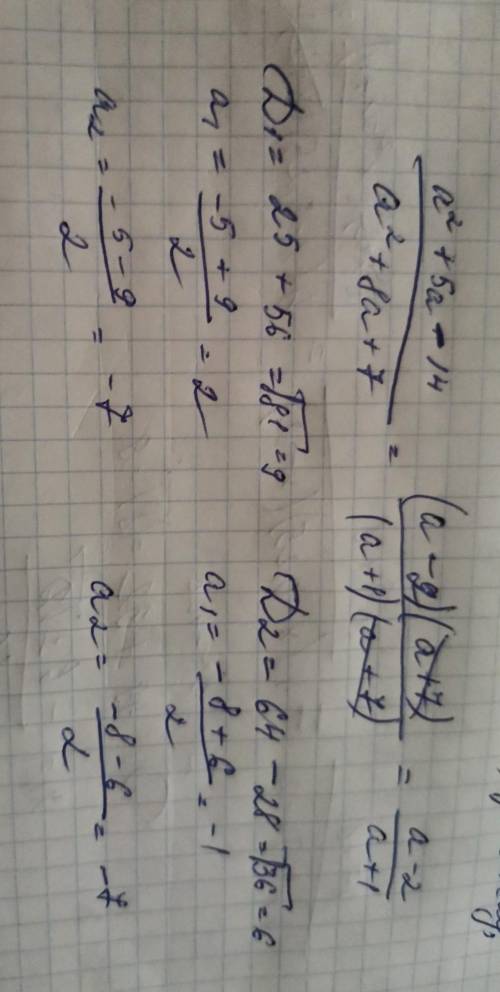 a² + 5a - 14 / a² + 8a + 7 = (a - 2)(a + 7) / (a + 1)(a + 7) = a - 2 / a + 1
D₁ = 25 + 56 = √81 = 9
a₁ = -5 + 9 / 2 = 2
a₂ = -5 - 9 / 2 = -7
D₂ = 64 - 28 = √36 = 6
a₁ = -8 + 6 / 2 = -1
a₂ = -8 - 6 / 2 = -7